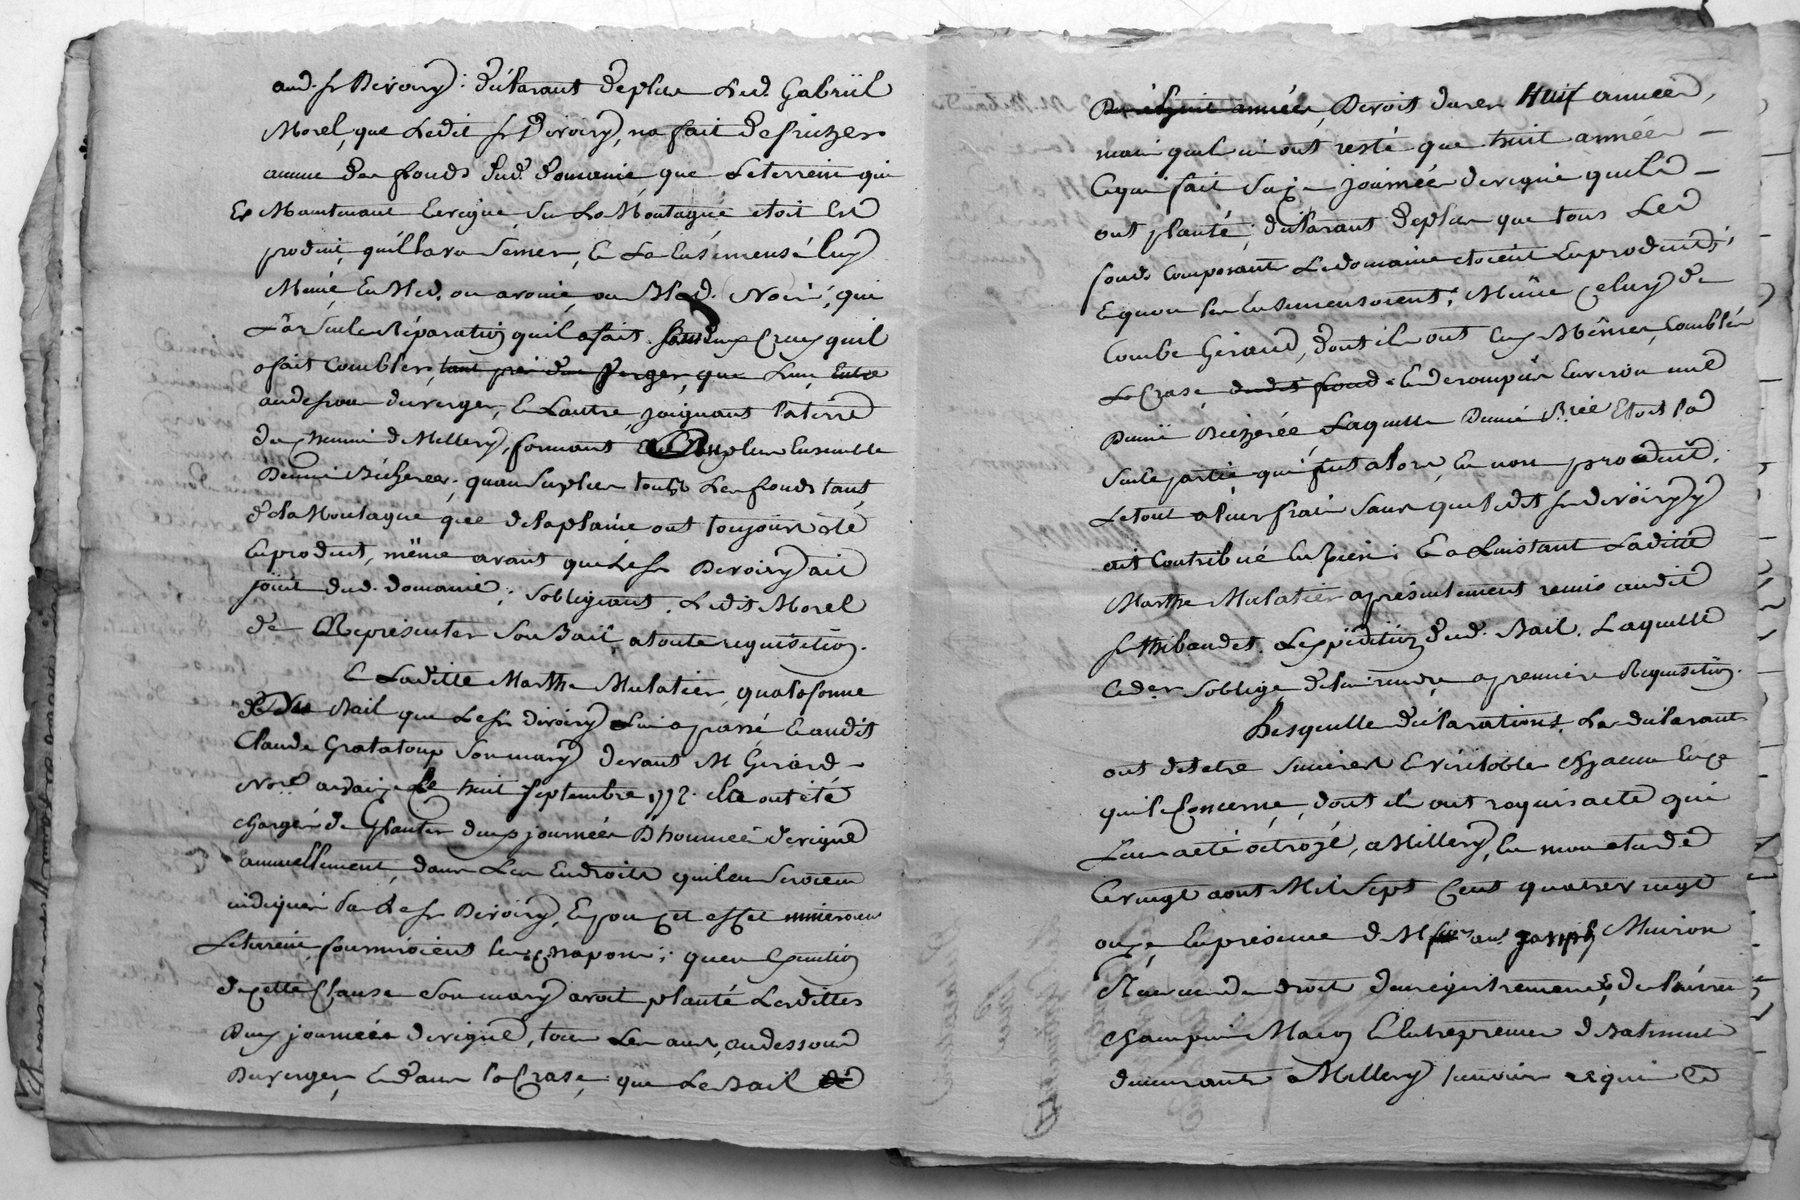 aud. sr Deroiry: déclarant deplus Led. Gabriël
Morel, que Ledit sr Deroiry, na fait defricher
aucun des fonds dud. domaine que Leterrein qui
Est Maintenant Envigne Sur La Montagne etoit En
produit, quil la vu Semer, & La Ensemensé luy
Même En bled, ou avoine, ou Bled Noir, qui
La Seule Réparation quil a fait deux Creux quil
a fait Combler, que Lun
audessous duverger, & Lautre joignant laterre
du chemin de Millery, formant auplus Ensemble
Demi Bicherée; quau Surplus touts Les fonds tant
dela Montagne que delaplaine ont toujours été
Enproduit, même avant queLe sr Deroiry ait
joüit dud. domaine; Sobligeant Ledit Morel
de Représenter Son Bail, atoute requisition.
& Laditte Marthe Mulatier, qualaforme
Du Bail que Le sr Deroiry Lui a passé & audit
Claude Gratatoup Son mary devant Me Girard
Nore Le huit Septembre 1772. ils ont été
chargés de Planter deux journées D'hommes devigne
annuellement, dans Les Endroits quileur Seroient
indiqués par Le sr Deroiry, & pour cet effet mineroient
Leterrein, fourniroient les chapons; quen Execution
decette Clause Son mary avoit planté Lesdittes
Deux journées devigne, tous Les ans, audessous
Duverger, & dans la Crase, que Le Bail
Devoit durer Huit années,
mais quils ni ont resté que huit années
Cequi fait Seize journées devigne quils
ont planté; déclarant deplus que tous Les
fonds Composant Ledomaine etoient Enproduits,
& quon les Ensemensoient, Même Celuy de
Combe Giraud, dont ils ont Eux Mêmes, Comblés
La Crase, & derompuë Environ une
Demie Bicherée, Laquelle Demie Brée Etoit la
Seule partie qui fut alors En non produit,
Letout a leurs frais Sans queledit sr deroiry y
ait Contribué En Rien; & a Linstant Laditte
Marthe Mulatier aprésentement remis audit
sr thibaudet, Lexpédition dud. Bail, Laquelle
Ceder Soblige delui rendre apremiere Requisition.
Desquelles déclarations, Les déclarants
ont dit être Sinceres & véritables chacun Ence
quiles Concerne, dont ils ont requis acte qui
Leur aété octroyé, a Millery, En mon etude
Cevingt aout Mil Sept Cent quatrevingt
onze Enprésence de M joseph Muiron
Receveur des droits denregistrements, & de
champin Maçon & Entrepreneur de Batiment
demeurants a Millery temoins requis &